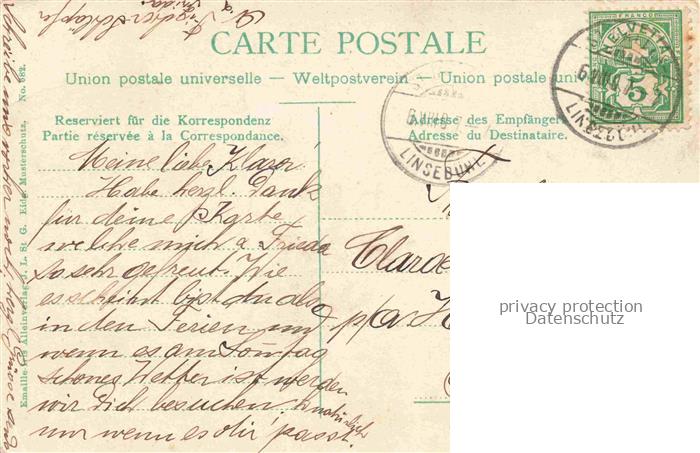 CARTE POSTALE
Union postale universelle – Weltpostverein – Union postale uni
Reserviert für die Korrespondenz
Partie réservée à la Correspondance.
Adresse des Empfängers
Adresse du Destinataire.
FRANCO
HELVETIA
5
LINSEBÜHL
Meine liebe Klara!
Habe herzl. Dank
für deine Karte,
welche mich & Frieda
so sehr gefreut. Wie
es scheint bist du also
in den Ferien und
wenn es am Sonntag
schönes Wetter ist werden
wir dich besuchen. natürlich
nur wenn es dir passt.
p/a H
Emaille-Alleinverlag J. L. St. G. Eidg. Musterschutz. No. 682.
privacy protection
Datenschutz